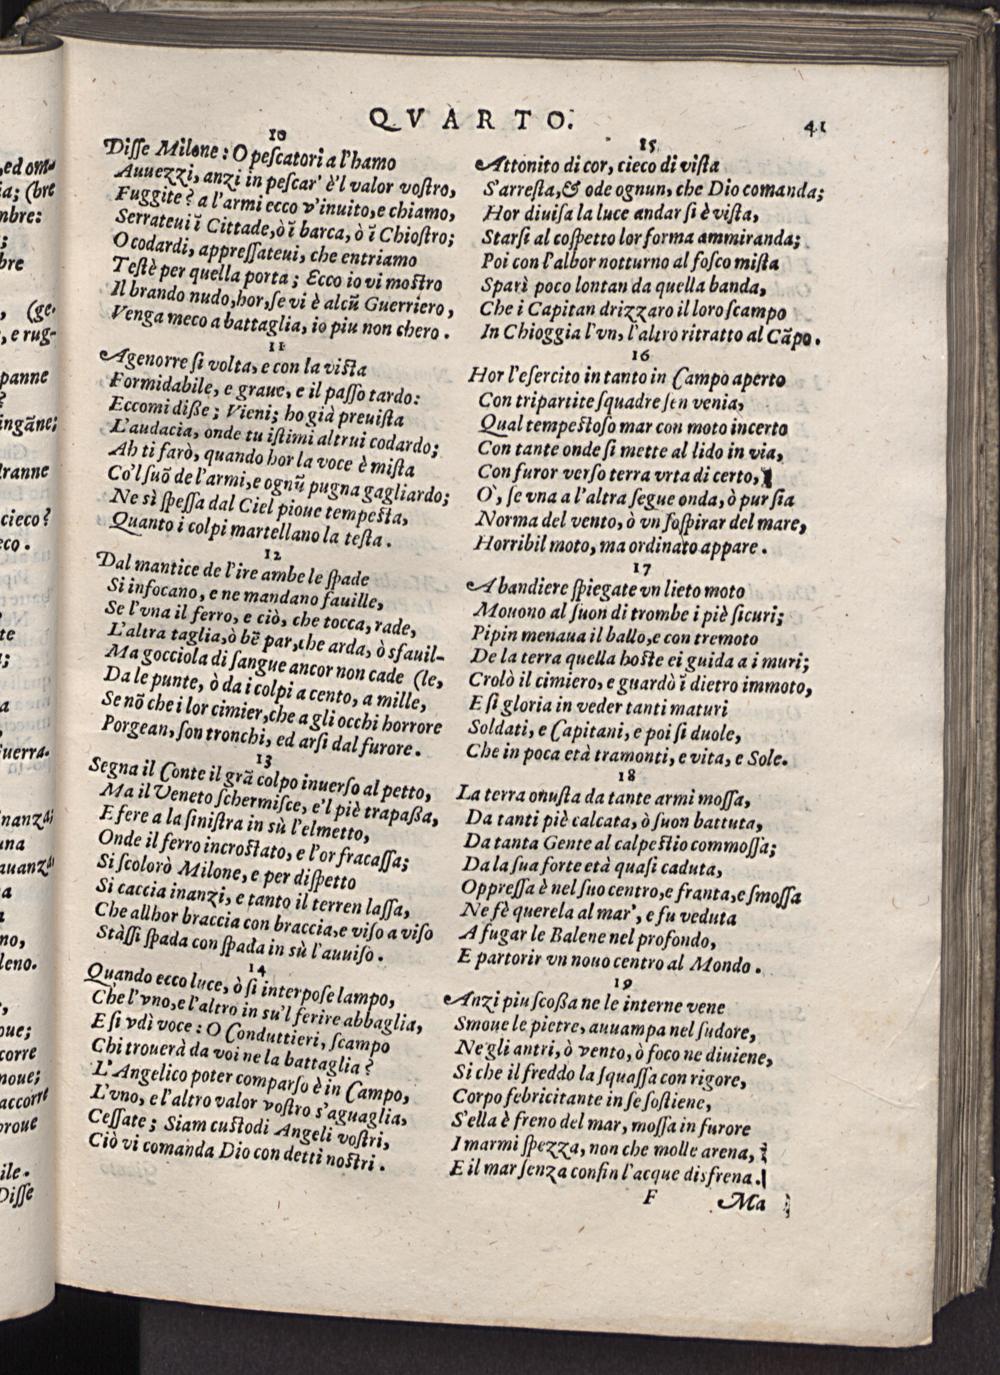 QVARTO.
41
10
Disse Milone: O pescatori a l'hamo
Auuezzi, anzi in pescar' è'l valor vostro,
Fuggite? a l'armi ecco v'inuito, e chiamo,
Serrateui ĩ Cittade, ò ĩ barca, ò ĩ Chiostro;
O codardi, appressateui, che entriamo
Testè per quella porta; Ecco io vi mostro
Il brando nudo, hor, se vi è alcũ Guerriero,
Venga meco a battaglia, io piu non chero.
11
Agenorre si volta, e con la vista
Formidabile, e graue, e il passo tardo:
Eccomi diße; Vieni; ho già preuista
L'audacia, onde tu istimi altrui codardo;
Ah ti farò, quando hor la voce è mista
Co'l suõ de l'armi, e ognũ pugna gagliardo;
Ne sì spessa dal Ciel pioue tempesta,
Quanto i colpi martellano la testa.
12
Dal mantice de l'ire ambe le spade
Si infocano, e ne mandano fauille,
Se l'vna il ferro, e ciò, che tocca, rade,
L'altra taglia, ò bẽ par, che arda, ò sfauil-
Ma gocciola di sangue ancor non cade (le,
Da le punte, ò da i colpi a cento, a mille,
Se nõ che i lor cimier, che a gli occhi horrore
Porgean, son tronchi, ed arsi dal furore.
13
Segna il Conte il grã colpo inuerso al petto,
Ma il Veneto schermisce, e'l piè trapaßa,
E fere a la sinistra in sù l'elmetto,
Onde il ferro incrostato, e l'or fracassa;
Si scolorò Milone, e per dispetto
Si caccia inanzi, e tanto il terren lassa,
Che allhor braccia con braccia, e viso a viso
Stàssi spada con spada in sù l'auuiso.
14
Quando ecco luce, ò si interpose lampo,
Che l'vno, e l'altro in su'l ferire abbaglia,
E si vdì voce: O Conduttieri, scampo
Chi trouerà da voi ne la battaglia?
L'Angelico poter comparso è in Campo,
L'vno, e l'altro valor vostro s'aguaglia,
Cessate; Siam custodi Angeli vostri,
Ciò vi comanda Dio con detti nostri.
15
Attonito di cor, cieco di vista
S'arresta, & ode ognun, che Dio comanda;
Hor diuisa la luce andar si è vista,
Starsi al cospetto lor forma ammiranda;
Poi con l'albor notturno al fosco mista
Sparì poco lontan da quella banda,
Che i Capitan drizzaro il loro scampo
In Chioggia l'vn, l'altro ritratto al Cãpo.
16
Hor l'esercito in tanto in Campo aperto
Con tripartite squadre sen venia,
Qual tempestoso mar con moto incerto
Con tante onde si mette al lido in via,
Con furor verso terra vrta di certo,
O', se vna a l'altra segue onda, ò pur sia
Norma del vento, ò vn sospirar del mare,
Horribil moto, ma ordinato appare.
17
A bandiere spiegate vn lieto moto
Mouono al suon di trombe i piè sicuri;
Pipin menaua il ballo, e con tremoto
De la terra quella hoste ei guida a i muri;
Crolò il cimiero, e guardò ĩ dietro immoto,
E si gloria in veder tanti maturi
Soldati, e Capitani, e poi si duole,
Che in poca età tramonti, e vita, e Sole.
18
La terra onusta da tante armi mossa,
Da tanti piè calcata, ò suon battuta,
Da tanta Gente al calpestio commossa;
Da la sua forte età quasi caduta,
Oppressa è nel suo centro, e franta, e smossa
Ne fè querela al mar', e fu veduta
A fugar le Balene nel profondo,
E partorir vn nouo centro al Mondo.
19
Anzi piu scoßa ne le interne vene
Smoue le pietre, auuampa nel sudore,
Ne gli antri, ò vento, ò foco ne diuiene,
Si che il freddo la squassa con rigore,
Corpo febricitante in se sostiene,
S'ella è freno del mar, mossa in furore
I marmi spezza, non che molle arena,
E il mar senza confin l'acque disfrena.
F
Ma